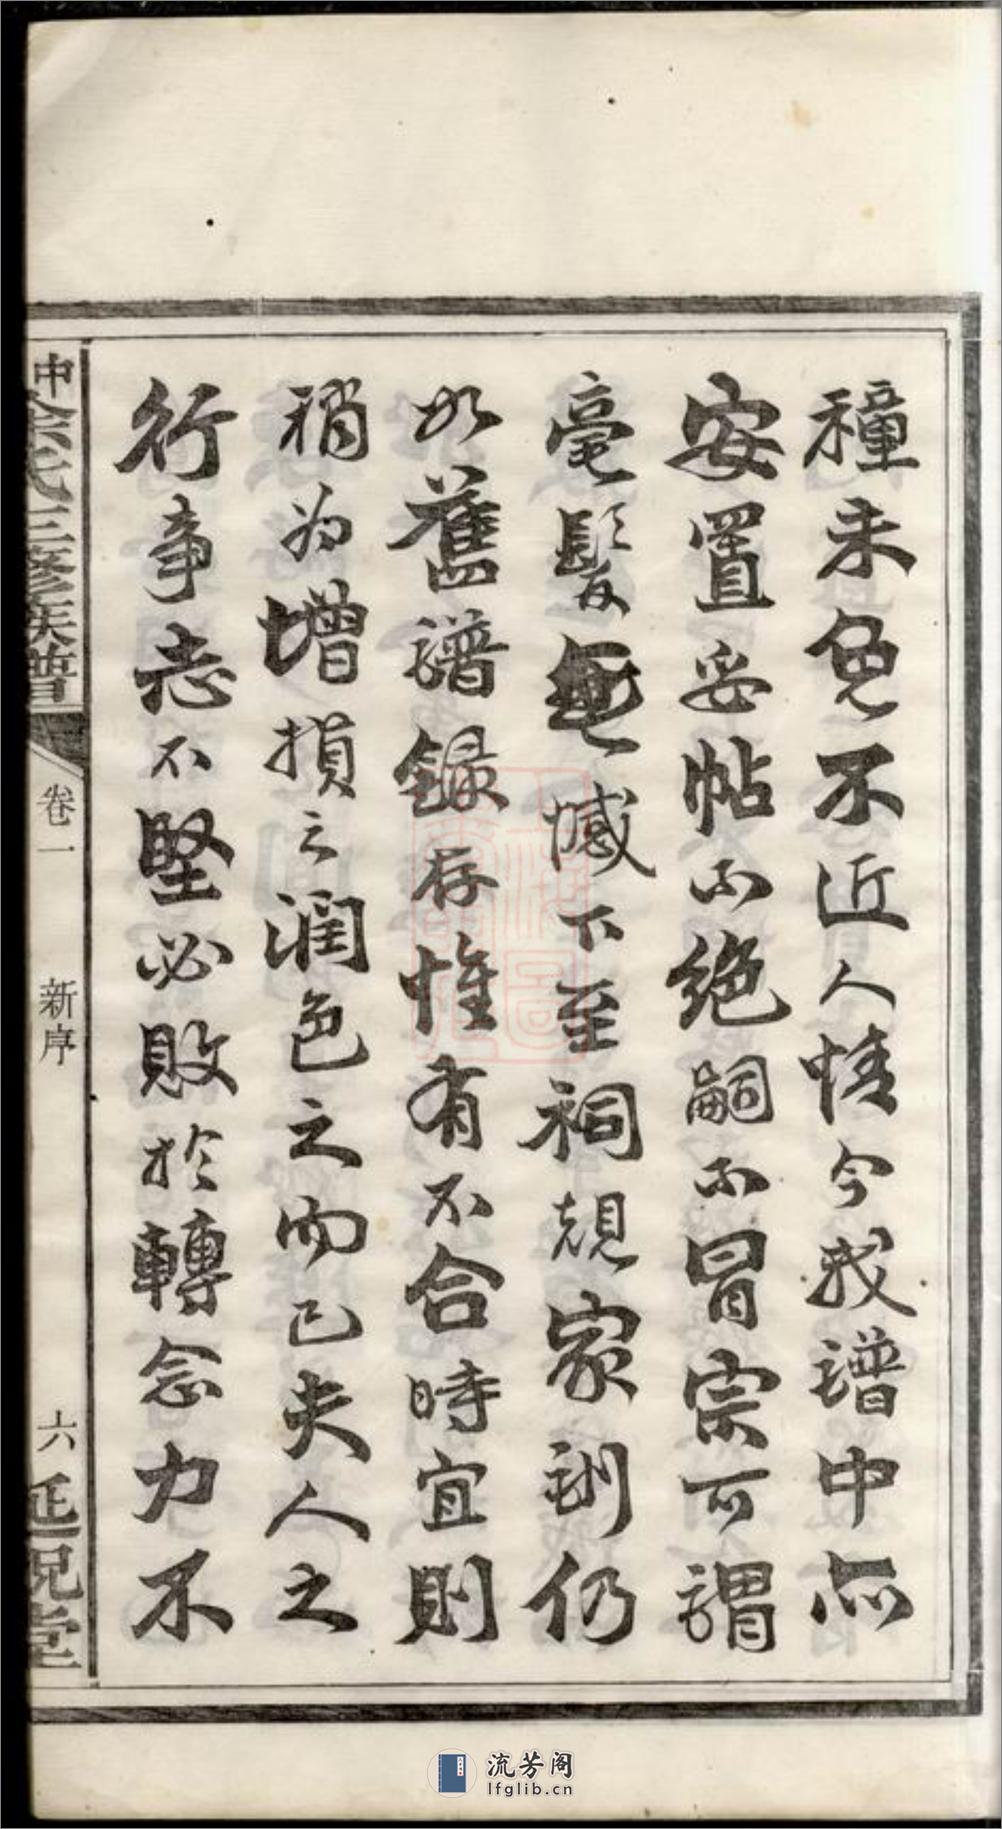 種未免不近人情今我譜中亦
安置妥帖不絕嗣不冒宗可謂
毫髮無憾下至祠規家訓仍
如舊譜錄存惟有不合時宜則
稍為增損之潤色之而已夫人之
行事志不堅必敗於轉念力不
中余氏三修族譜
卷一
新序
六
堂
流芳阁
lfglib.cn